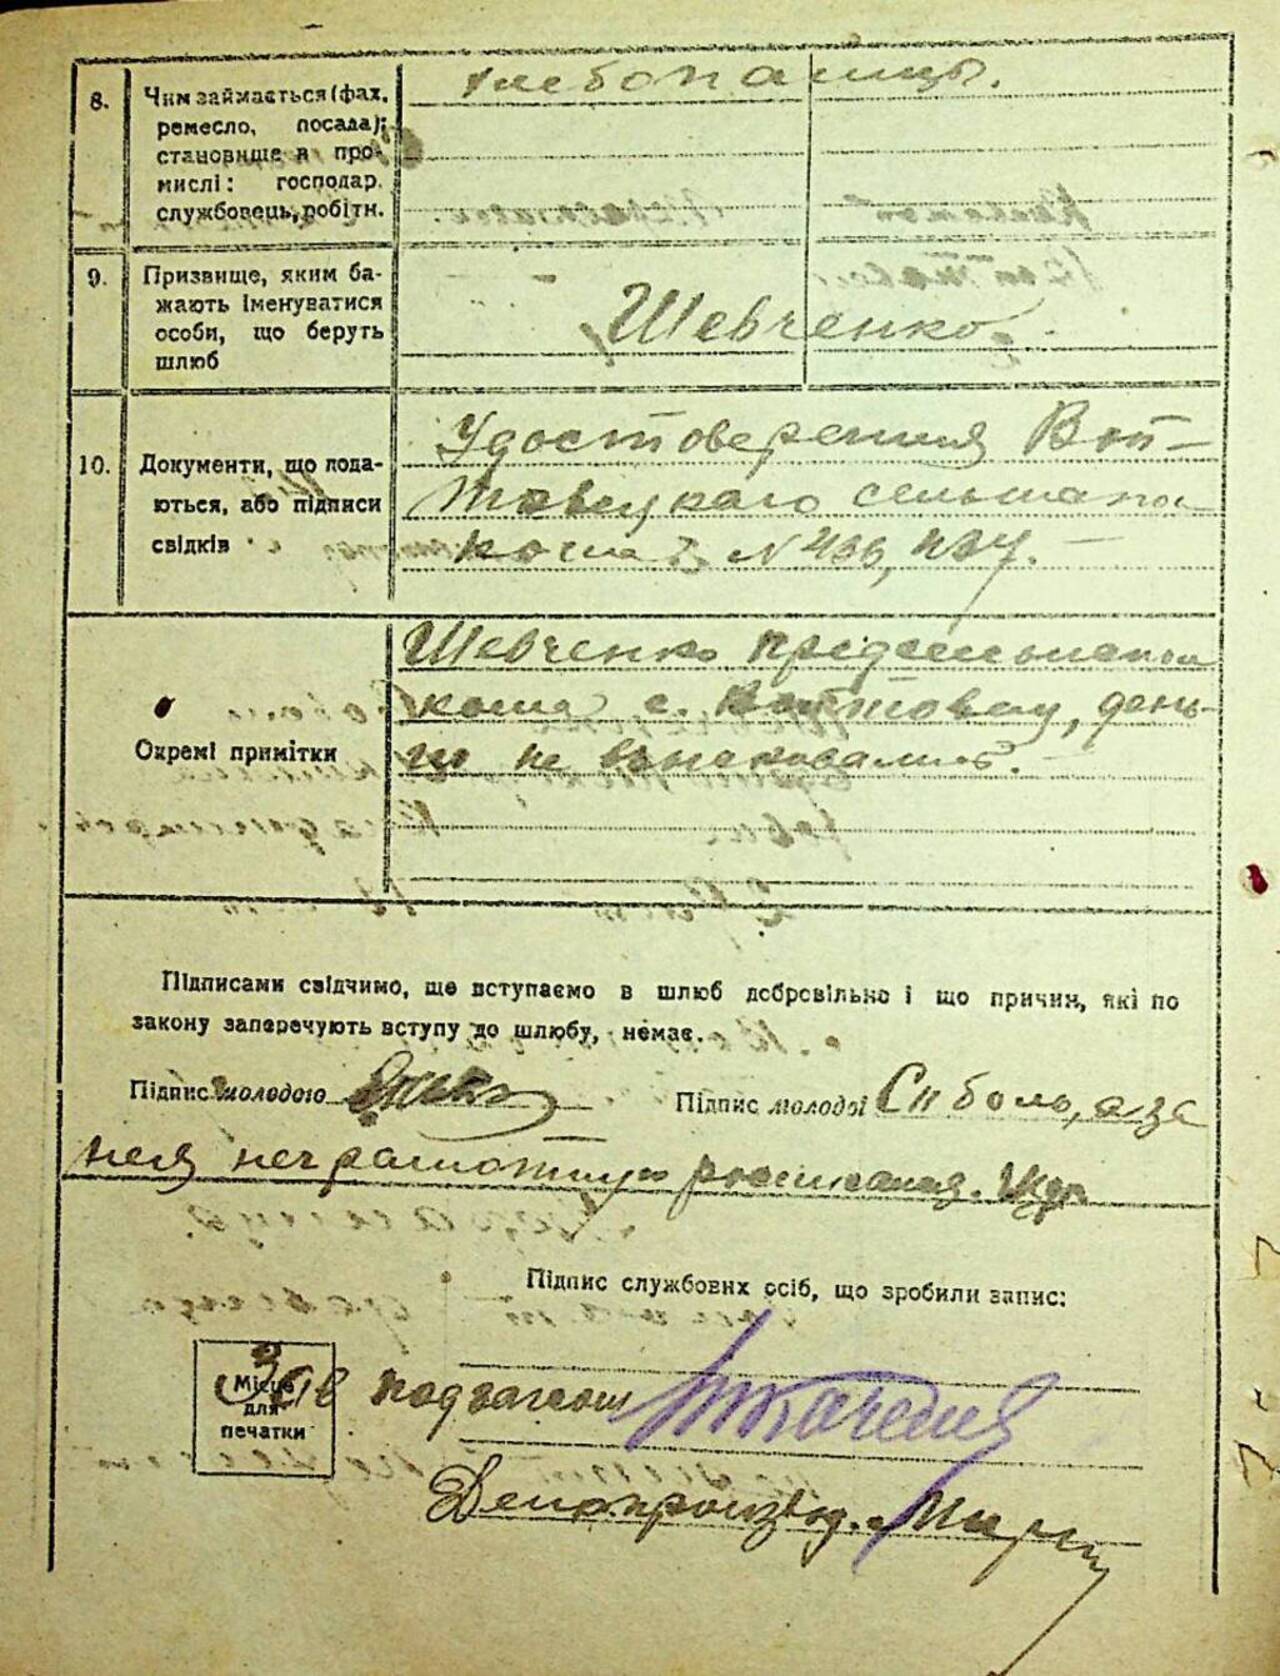 8. Чим займається (фах, хлебопашцы.
ремесло, посада);
становище в про-
мислі: господар.
службовець, робітн.
9. Призвище, яким ба-
жають іменуватися
особи, що беруть Шевченко
шлюб
10. Документи, що пода-
ються, або підписи
свідків
Удостоверения Вой-
товецкаго
№ 436, 437.
Окремі примітки
Шевченко
с. Войтовец, день-
ги не взыскивались.
Підписами свідчимо, що вступаємо в шлюб добровільно і що причин, які по
закону заперечують вступу до шлюбу, немає.
Підпис молодого Підпис молодої Сиболь, а за
нея неграмотную росписался
Підпис службових осіб, що зробили запис:
Місце
для
печатки
Зав подзагсом Ткаченко
Делопроизвод.